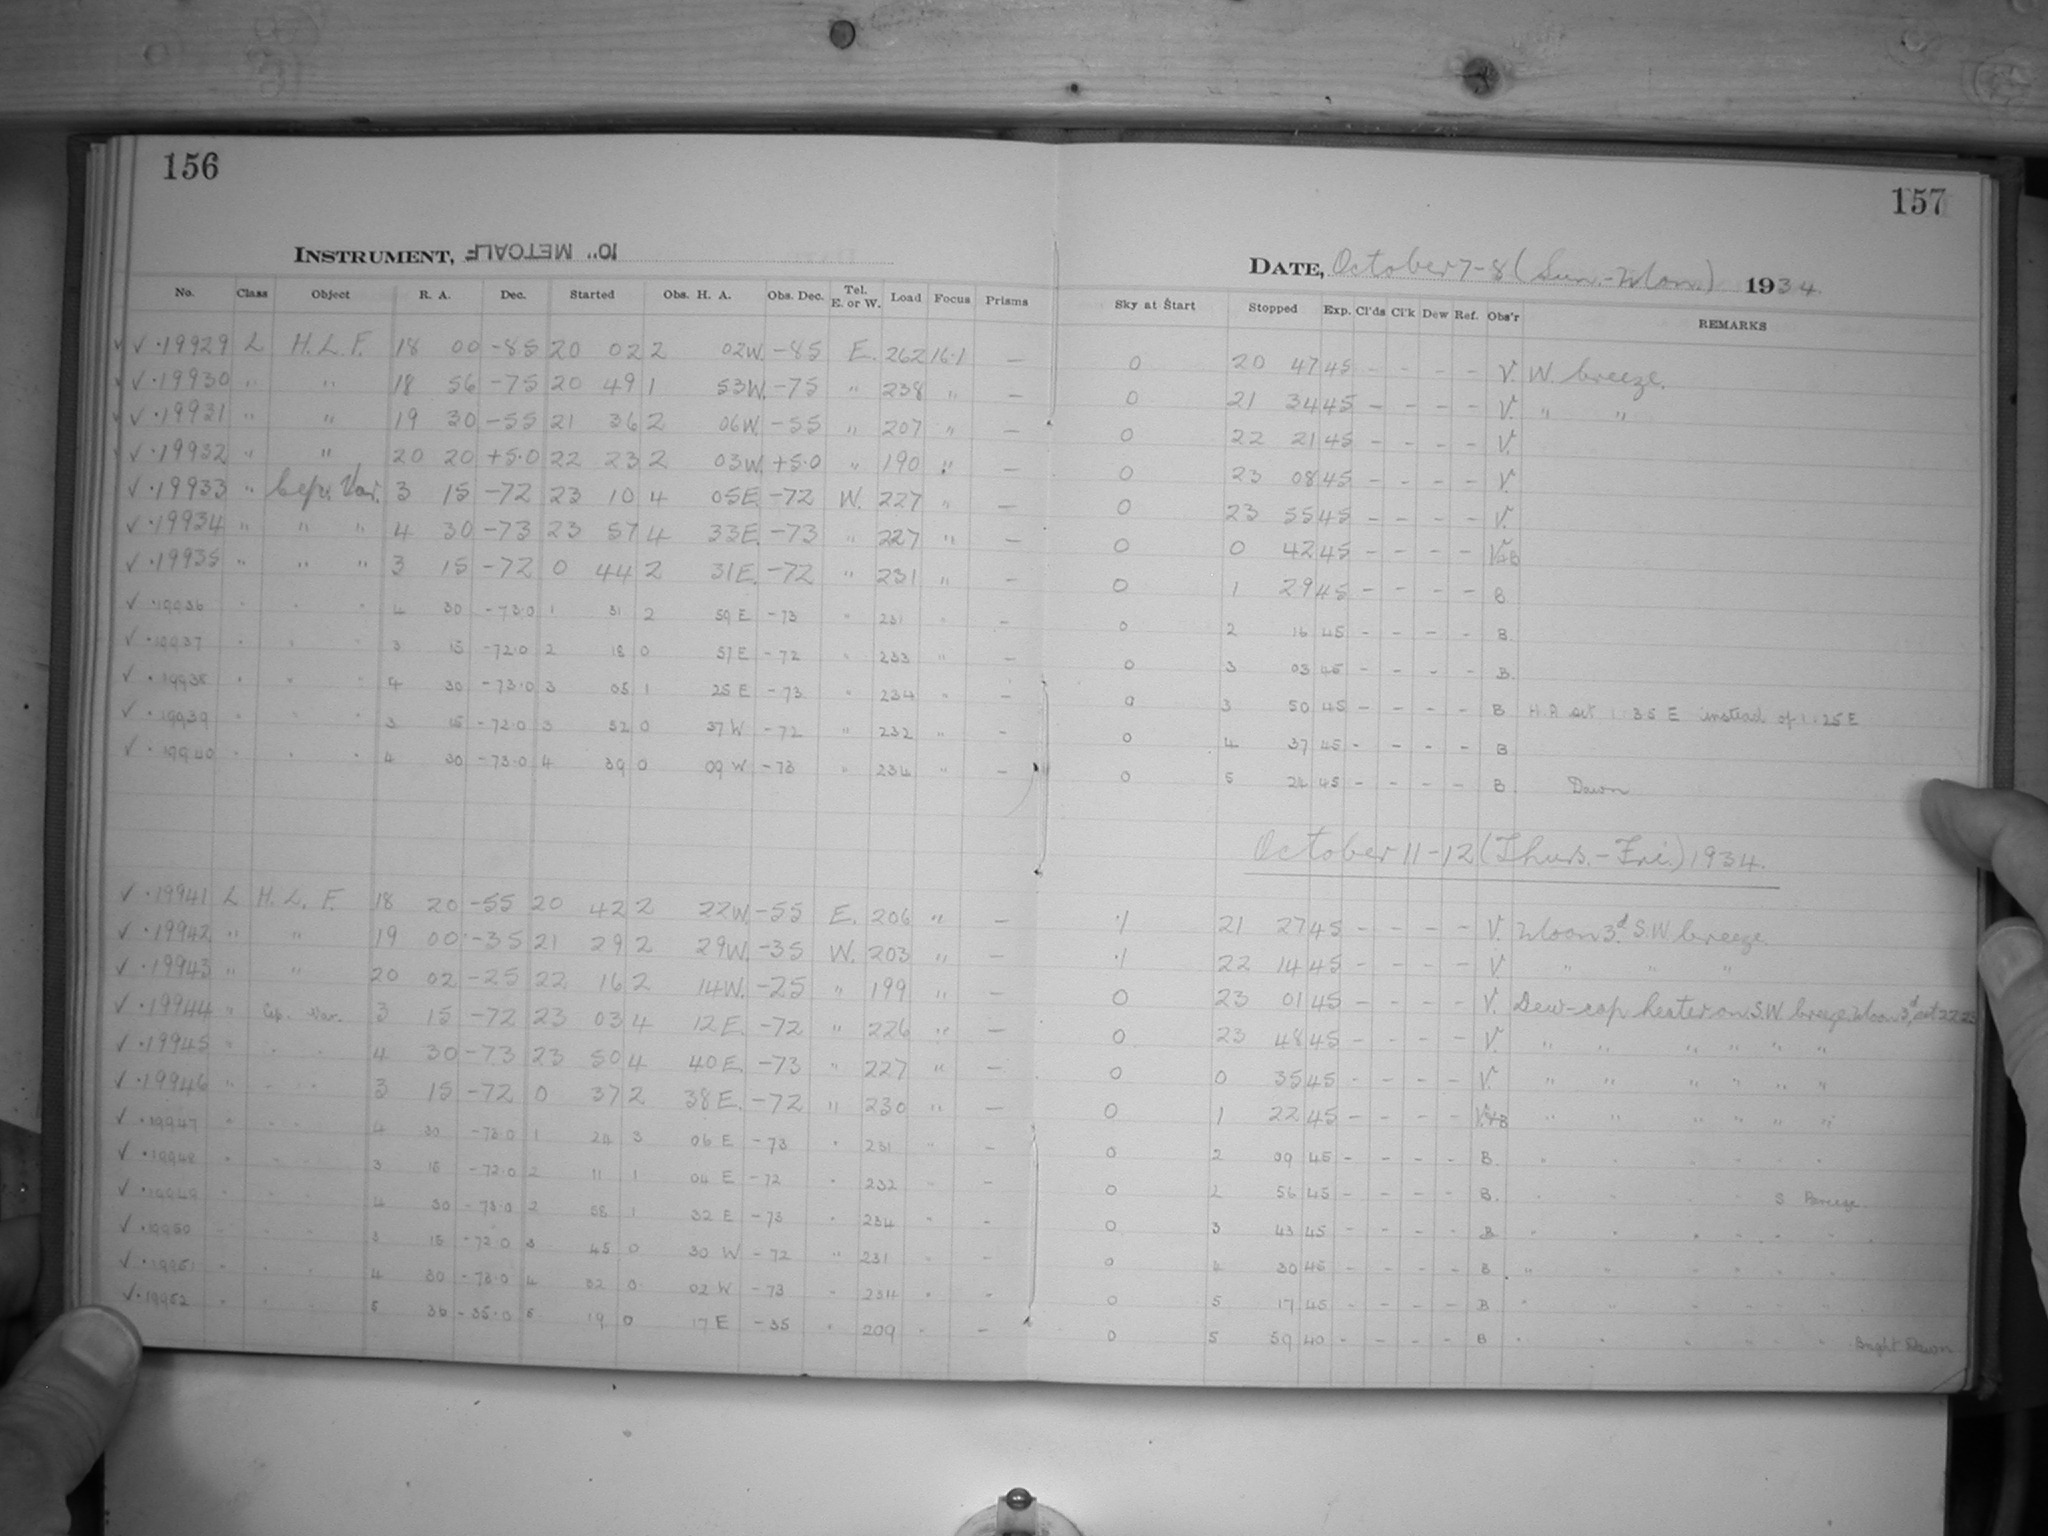 156
157
INSTRUMENT, 10" METCALF
DATE, October 7-8 (Sun.-Mon.) 1934.
No. Class Object R. A. Dec. Started Obs. H. A. Obs. Dec. Tel. E. or W. Load Focus Prisms Sky at Start Stopped Exp. Cl'ds Cl'k Dew Ref. Obs'r REMARKS
✓ ✓ ·19929 L H.L.F. 18 00 -85 20 02 2 02W. -85 E. 262 16·1 — 0 20 47 45 - - - - V. W. breeze.
✓ ✓ ·19930 " " 18 56 -75 20 49 1 53W. -75 " 238 " — 0 21 34 45 - - - - V. " "
✓ ✓ ·19931 " " 19 30 -55 21 36 2 06W. -55 " 207 " — 0 22 21 45 - - - - V.
✓ ✓ ·19932 " " 20 20 +5·0 22 23 2 03W. +5·0 " 190 " — 0 23 08 45 - - - - V.
✓ ·19933 " Cep. Var. 3 15 -72 23 10 4 05E. -72 W. 227 " — 0 23 55 45 - - - - V.
✓ ·19934 " " " 4 30 -73 23 57 4 33E. -73 " 227 " — 0 0 42 45 - - - - V+B
✓ ·19935 " " " 3 15 -72 0 44 2 31E. -72 " 231 " — 0 1 29 45 - - - - B
✓ ·19936 " " " 4 30 -73·0 1 31 2 59 E -73 " 231 " — 0 2 16 45 - - - - B.
✓ ·19937 " " " 3 15 -72·0 2 18 0 57 E -72 " 233 " — 0 3 03 45 - - - - B.
✓ ·19938 " " " 4 30 -73·0 3 05 1 25 E -73 " 234 " — 0 3 50 45 - - - - B H.A set 1:35 E instead of 1:25 E
✓ ·19939 " " " 3 15 -72·0 3 52 0 37 W -72 " 232 " — 0 4 37 45 - - - - B
✓ ·19940 " " " 4 30 -73·0 4 39 0 09 W -73 " 234 " — 0 5 24 45 - - - - B. Dawn
October 11-12 (Thurs.-Fri.) 1934.
✓ ·19941 L H.L.F. 18 20 -55 20 42 2 22W. -55 E. 206 " — ·1 21 27 45 - - - - V. Moon 3.d S.W breeze.
✓ ·19942 " " 19 00 -35 21 29 2 29W. -35 W. 203 " — ·1 22 14 45 - - - - V. " " "
✓ ·19943 " " 20 02 -25 22 16 2 14W. -25 " 199 " — 0 23 01 45 - - - - V. Dew-cap heater on. S.W breeze. Moon 3.d set 22 22
✓ ·19944 " Cep. Var. 3 15 -72 23 03 4 12E. -72 " 226 " — 0 23 48 45 - - - - V. " " " " " "
✓ ·19945 " " " 4 30 -73 23 50 4 40E. -73 " 227 " — 0 0 35 45 - - - - V. " " " " " "
✓ ·19946 " " " 3 15 -72 0 37 2 38E. -72 " 230 " — 0 1 22 45 - - - - V.+B " " " " " "
✓ ·19947 " " " 4 30 -73·0 1 24 3 06 E -73 " 231 " — 0 2 09 45 - - - - B. " " " " "
✓ ·19948 " " " 3 15 -72·0 2 11 1 04 E -72 " 232 " — 0 2 56 45 - - - - B. " " " S Breeze
✓ ·19949 " " " 4 30 -73·0 2 58 1 32 E -73 " 234 " — 0 3 43 45 - - - - B " " " " " "
✓ ·19950 " " " 3 15 -72·0 3 45 0 30 W -72 " 231 " — 0 4 30 45 - - - - B " " " " " "
✓ ·19951 " " " 4 30 -73·0 4 32 0 02 W -73 " 234 " — 0 5 17 45 - - - - B " " " " " "
✓ ·19952 " " " 5 36 -35·0 5 19 0 17 E -35 " 209 " — 0 5 59 40 - - - - B " " " " " Bright Dawn